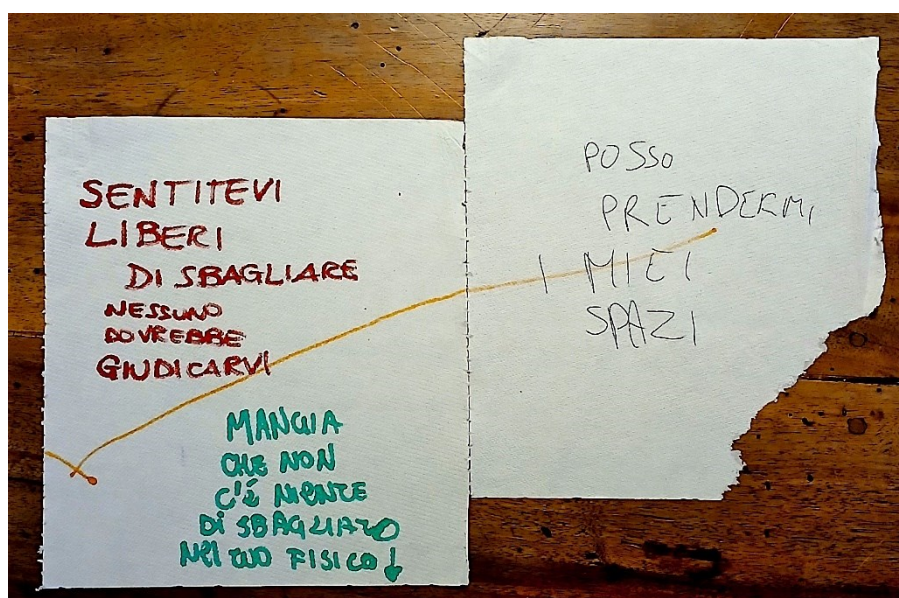 SENTITEVI
LIBERI
DI SBAGLIARE
NESSUNO
DOVREBBE
GIUDICARVI
MANGIA
CHE NON
C'È NIENTE
DI SBAGLIATO
NEL TUO FISICO ↓
POSSO
PRENDERMI
I MIEI
SPAZI